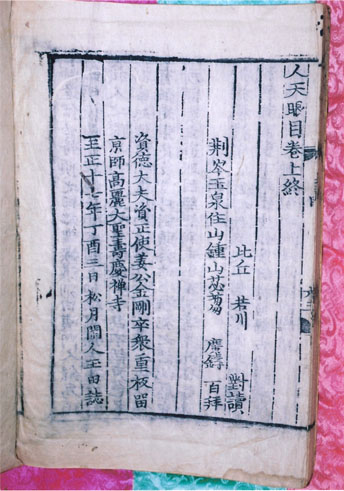 人天眼目卷上終
比丘 若川 對讀
荊岑玉泉住山鍾山苾蒭 百拜
資德大夫資正使姜公金剛卒衆重板留
京師高麗大聖壽慶禪寺
至正十七年丁酉三日松月閒人王田誌